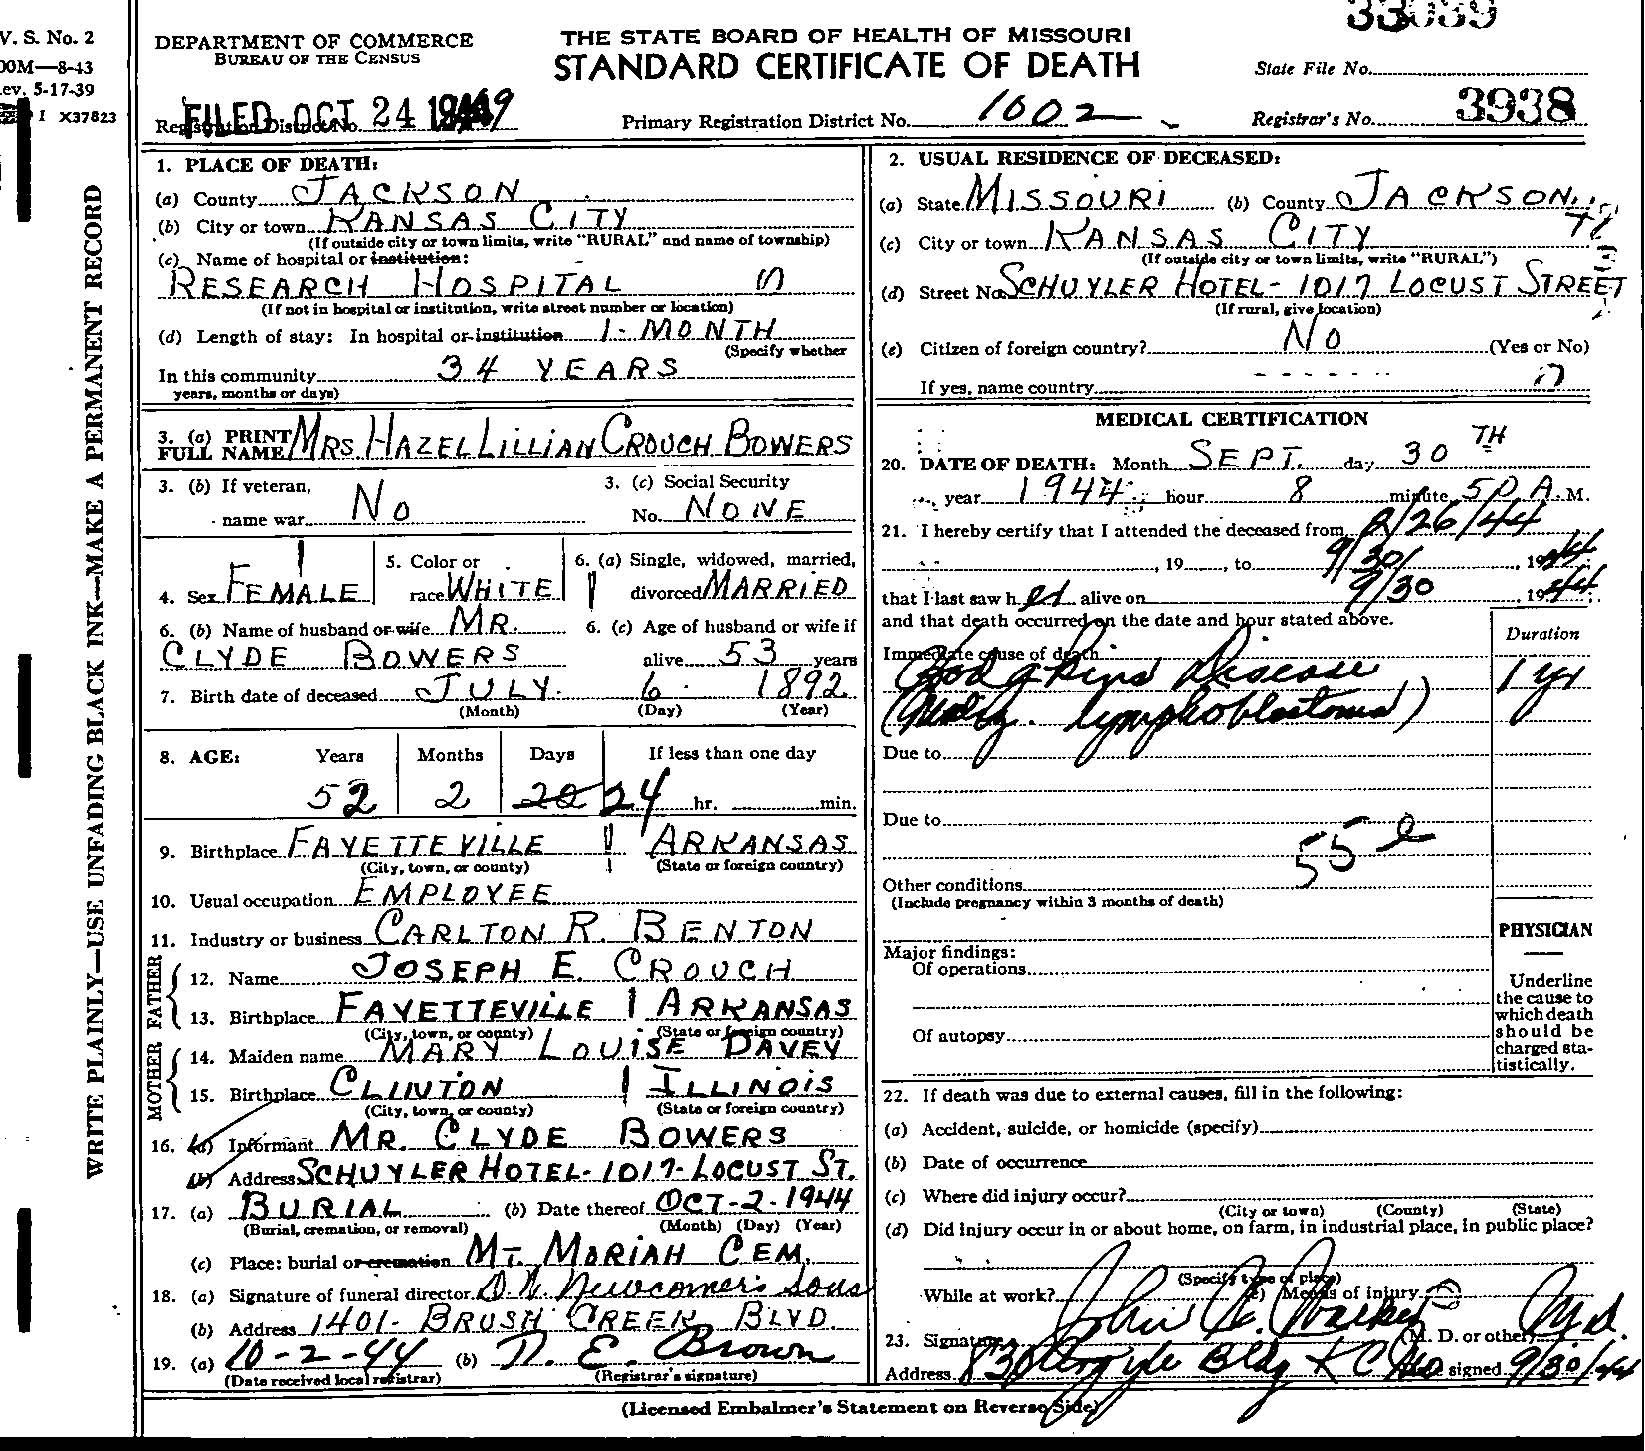 33039
V. S. No. 2
00M—8-43
ev. 5-17-39
I X37823
DEPARTMENT OF COMMERCE
BUREAU OF THE CENSUS
THE STATE BOARD OF HEALTH OF MISSOURI
STANDARD CERTIFICATE OF DEATH
State File No.
FILED OCT 24
Registration District No.
Primary Registration District No. 1002
Registrar's No. 3938
WRITE PLAINLY—USE UNFADING BLACK INK—MAKE A PERMANENT RECORD
1. PLACE OF DEATH:
(a) County JACKSON
(b) City or town KANSAS CITY
(If outside city or town limits, write "RURAL" and name of township)
(c) Name of hospital or institution:
RESEARCH HOSPITAL
(If not in hospital or institution, write street number or location)
(d) Length of stay: In hospital or institution 1- MONTH
(Specify whether
In this community 34 YEARS
years, months or days)
2. USUAL RESIDENCE OF DECEASED:
(a) State MISSOURI (b) County JACKSON
(c) City or town KANSAS CITY
(If outside city or town limits, write "RURAL")
(d) Street No. SCHUYLER HOTEL- 1017 LOCUST STREET
(If rural, give location)
(e) Citizen of foreign country? NO (Yes or No)
If yes, name country
3. (a) PRINT FULL NAME MRS. HAZEL LILLIAN CROUCH BOWERS
3. (b) If veteran, name war NO
3. (c) Social Security No. NONE
4. Sex FEMALE
5. Color or race WHITE
6. (a) Single, widowed, married, divorced MARRIED
6. (b) Name of husband or wife MR. CLYDE BOWERS
6. (c) Age of husband or wife if alive 53 years
7. Birth date of deceased JULY 6 1892
(Month) (Day) (Year)
8. AGE: Years Months Days If less than one day
52 2 20 24 hr. min.
9. Birthplace FAYETTEVILLE ARKANSAS
(City, town, or county) (State or foreign country)
10. Usual occupation EMPLOYEE
11. Industry or business CARLTON R. BENTON
FATHER
12. Name JOSEPH E. CROUCH
13. Birthplace FAYETTEVILLE ARKANSAS
(City, town, or county) (State or foreign country)
MOTHER
14. Maiden name MARY LOUISE DAVEY
15. Birthplace CLINTON ILLINOIS
(City, town, or county) (State or foreign country)
16. (a) Informant MR. CLYDE BOWERS
(b) Address SCHUYLER HOTEL- 1017- LOCUST ST.
17. (a) BURIAL (b) Date thereof OCT-2-1944
(Burial, cremation, or removal) (Month) (Day) (Year)
(c) Place: burial or cremation MT. MORIAH CEM.
18. (a) Signature of funeral director D.W. Newcomer's Sons
(b) Address 1401- BRUSH CREEK BLVD.
19. (a) 10-2-44 (b) E. Brown
(Date received local registrar) (Registrar's signature)
MEDICAL CERTIFICATION
20. DATE OF DEATH: Month SEPT. day 30 TH
year 1944 hour 8 minute 50 A. M.
21. I hereby certify that I attended the deceased from 8/26/44
, 19 , to 9/30/ , 1944
that I last saw her alive on 9/30 , 1944
and that death occurred on the date and hour stated above.
Duration
Immediate cause of death
Hodgkins Disease 1 yr
(Malig. lymphoblastoma)
Due to
Due to
55 e
Other conditions
(Include pregnancy within 3 months of death)
Major findings:
Of operations
Of autopsy
PHYSICIAN
Underline
the cause to
which death
should be
charged sta-
tistically.
22. If death was due to external causes, fill in the following:
(a) Accident, suicide, or homicide (specify)
(b) Date of occurrence
(c) Where did injury occur?
(City or town) (County) (State)
(d) Did injury occur in or about home, on farm, in industrial place, in public place?
(Specify type of place)
While at work? (e) Means of injury
23. Signature John Walker (M. D. or other) M.D.
Address 830 Argyle Bldg KC Mo Date signed 9/30/44
(Licensed Embalmer's Statement on Reverse Side)